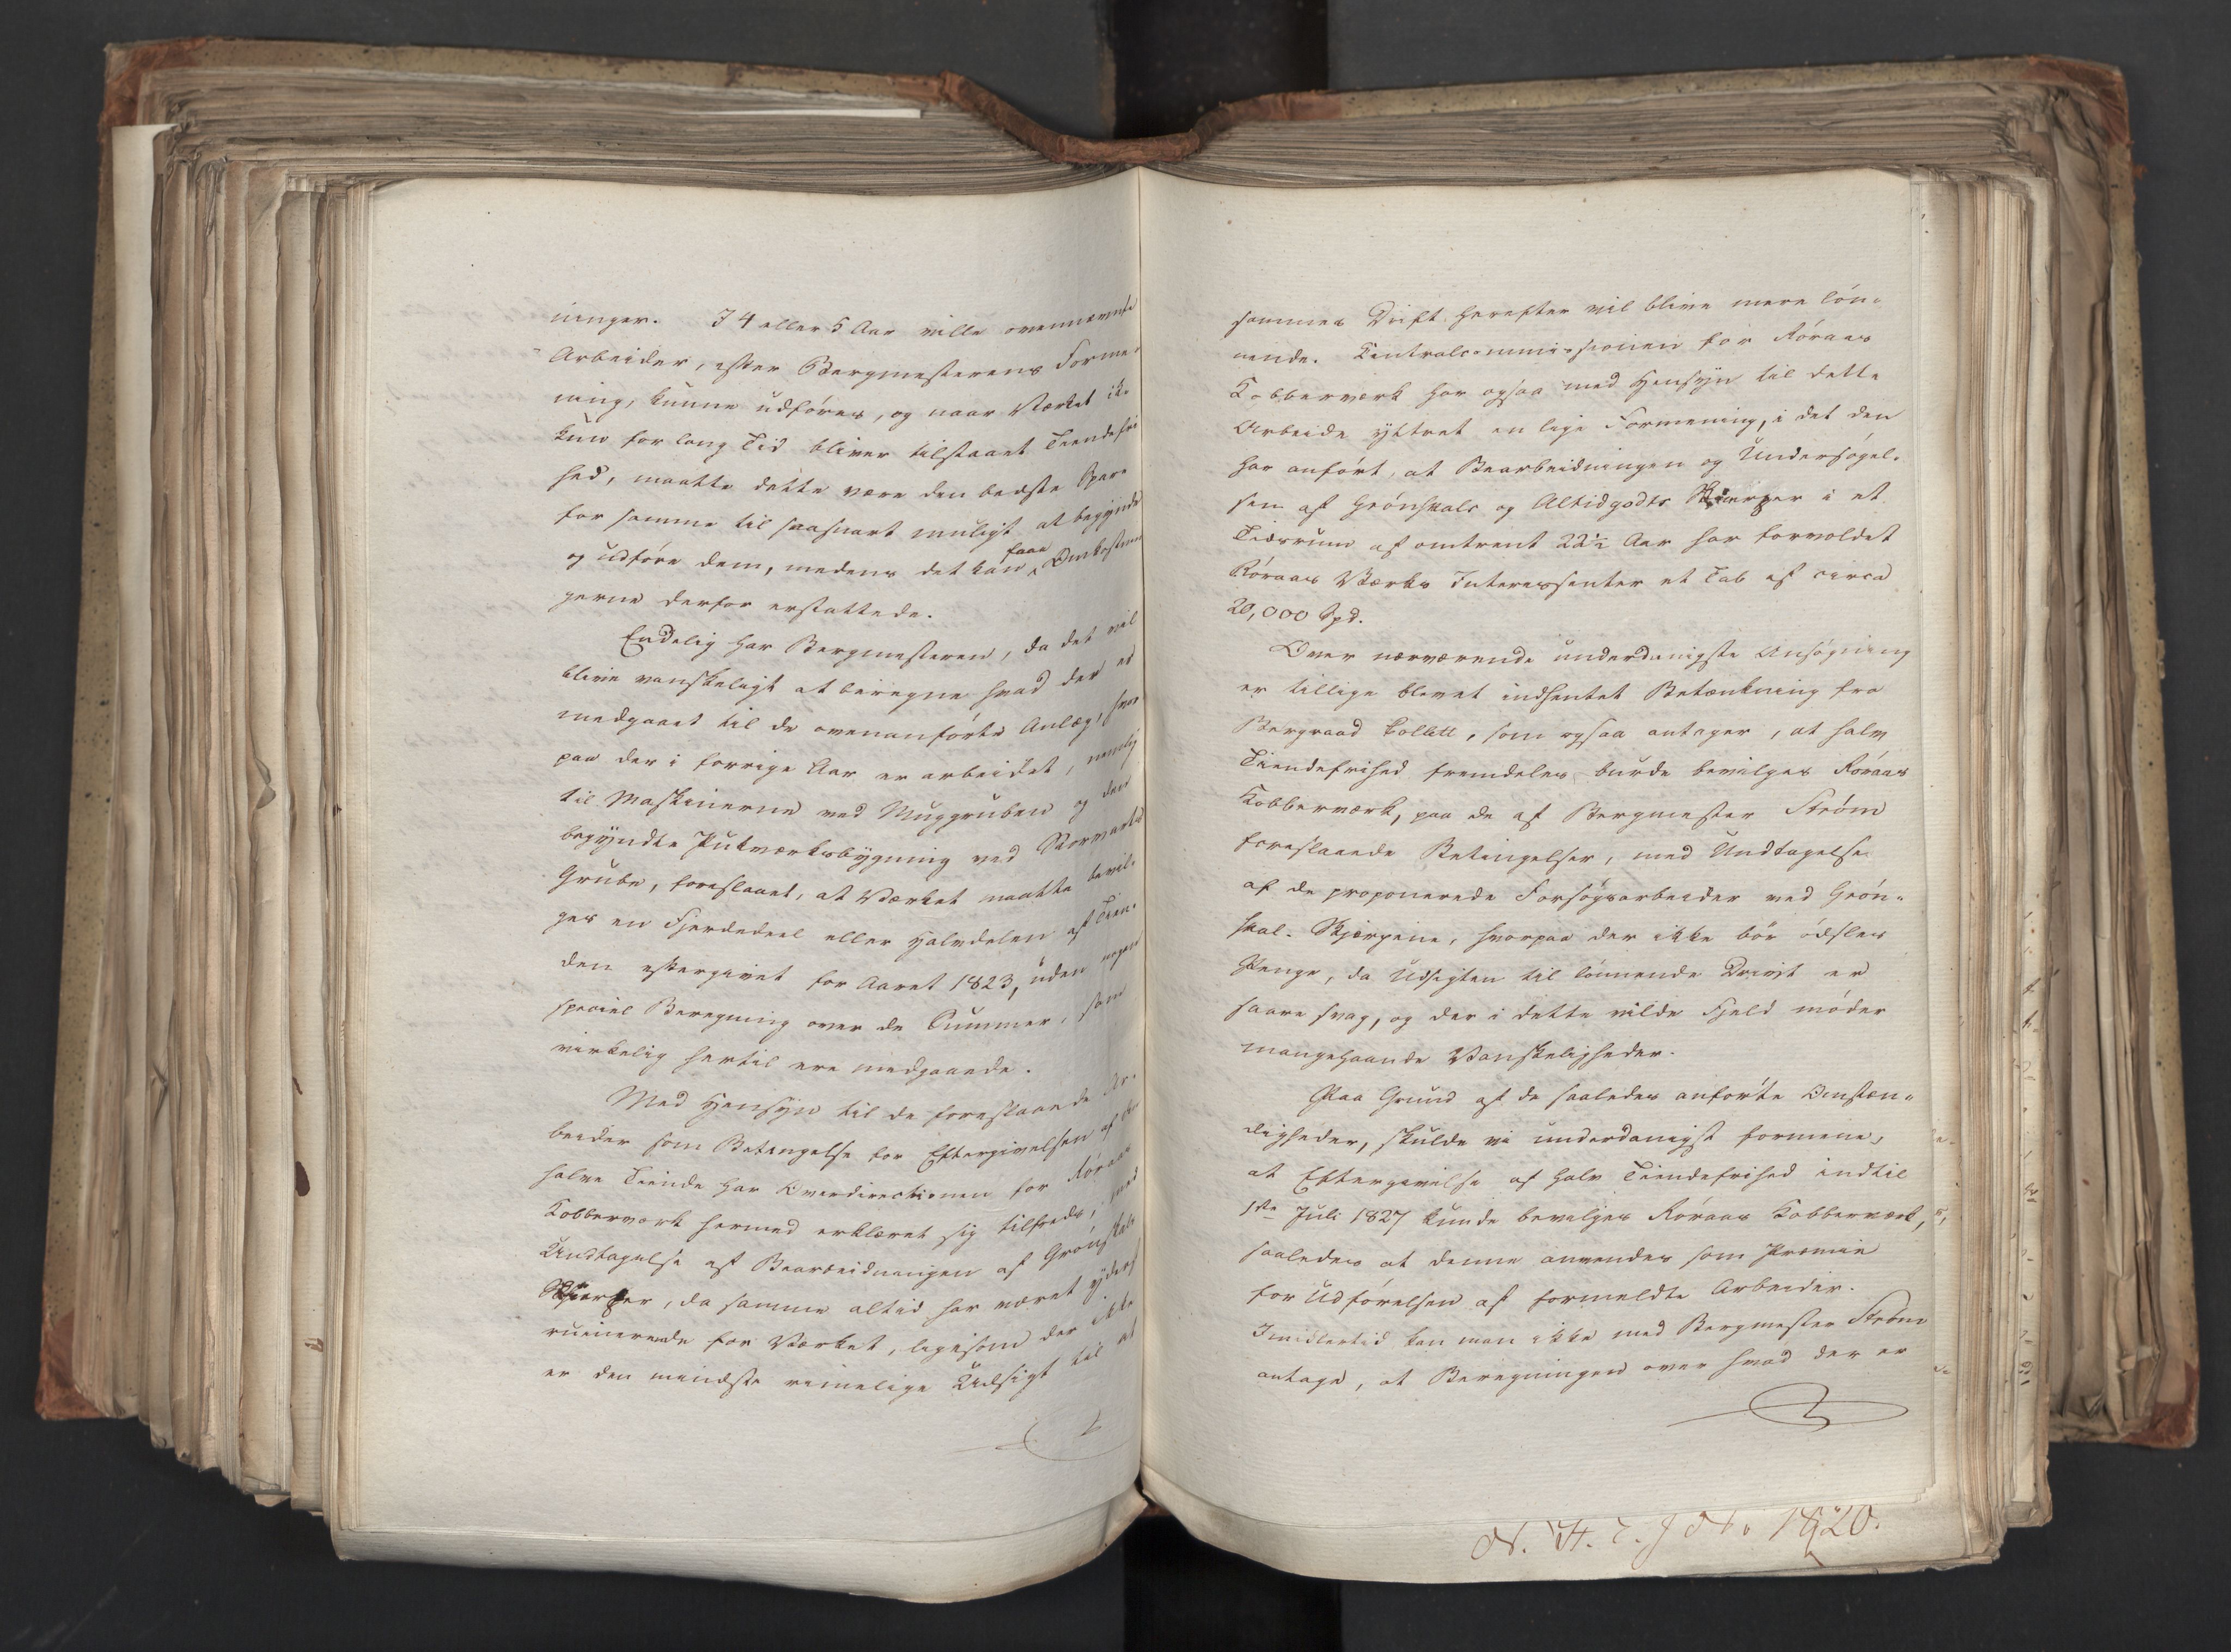 ninger. I 4 eller 5 Aar ville ovennævnte
Arbeider, efter Bergmesterens Forme-
ning, kunne udføres, og naar Værket ik-
kun for lang Tid bliver tilstaaet Tiendefri
hed, maatte dette være den bedste Spore
for samme til saasnart muligt at begynde
og udføre dem, medens det kan faae Omkostnin
gerne derfor erstattede.
Endelig har Bergmesteren, da det vil
blive vanskeligt at beregne hvad der er
medgaaet til de ovenanførte Anlæg, hvor
paa der i forrige Aar er arbeidet, nemlig
til Maskinerne ved Muggruben og den
begyndte Pukværksbygning ved Storvarts
Grube, foreslaaet, at Værket maatte bevil-
ges en Fjerdedeel eller Halvdelen af Tien-
den eftergivet for Aaret 1823, uden nogen
speciel Beregning over de Summer, som
virkelig hertil ere medgaaede.
Med Hensyn til de foreslaaede Ar-
beider som Betingelse for Eftergivelsen af den
halve Tiende har Overdirectionen for Røraas
Kobberværk hermed erklæret sig tilfreds, med
Undtagelse af Bearbeidningen af Grønskals
Skjerper, da samme altid har været yderst
ruinerende for Værket, ligesom der ikke
er den mindste rimelige Udsigt til at
sammes Drift herefter vil blive mere løn-
nende. Centralcommissionen for Røraas
Kobberværk har ogsaa med Hensyn til dette
Arbeide yttret en lige Formening, i det den
har anført, at Bearbeidningen og Undersøgel-
sen af Grønskals og Altidgodts Skjerper i et
Tidsrum af omtrent 22½ Aar har forvoldet
Røraas Værks Interessenter et Tab af circa
20,000 Spd.
Over nærværende underdanigste Ansøgning
er tillige blevet indhentet Betænkning fra
Bergraad Collett, som ogsaa antager, at halv
Tiendefrihed fremdeles burde bevilges Røraas
Kobberværk, paa de af Bergmester Strøm
foreslaaede Betingelser, med Undtagelse
af de proponerede Forsøgsarbeider ved Grøn-
skal-Skjerpene, hvorpaa der ikke bør ødsles
Penge, da Udsigten til lønnende Drivt er
saare svag, og der i dette vilde Fjeld møder
mangehaande Vanskeligheder.
Paa Grund af de saaledes anførte Omstæn-
digheder, skulde vi underdanigst formene,
at Eftergivelse af halv Tiendefrihed indtil
1ste Juli 1827 kunde bevilges Røraas Kobberværk,
saaledes at denne anvendes som Præmie
for Udførelsen af formeldte Arbeider.
Imidlertid kan man ikke med Bergmester Strøm
antage, at Beregningen over hvad der er